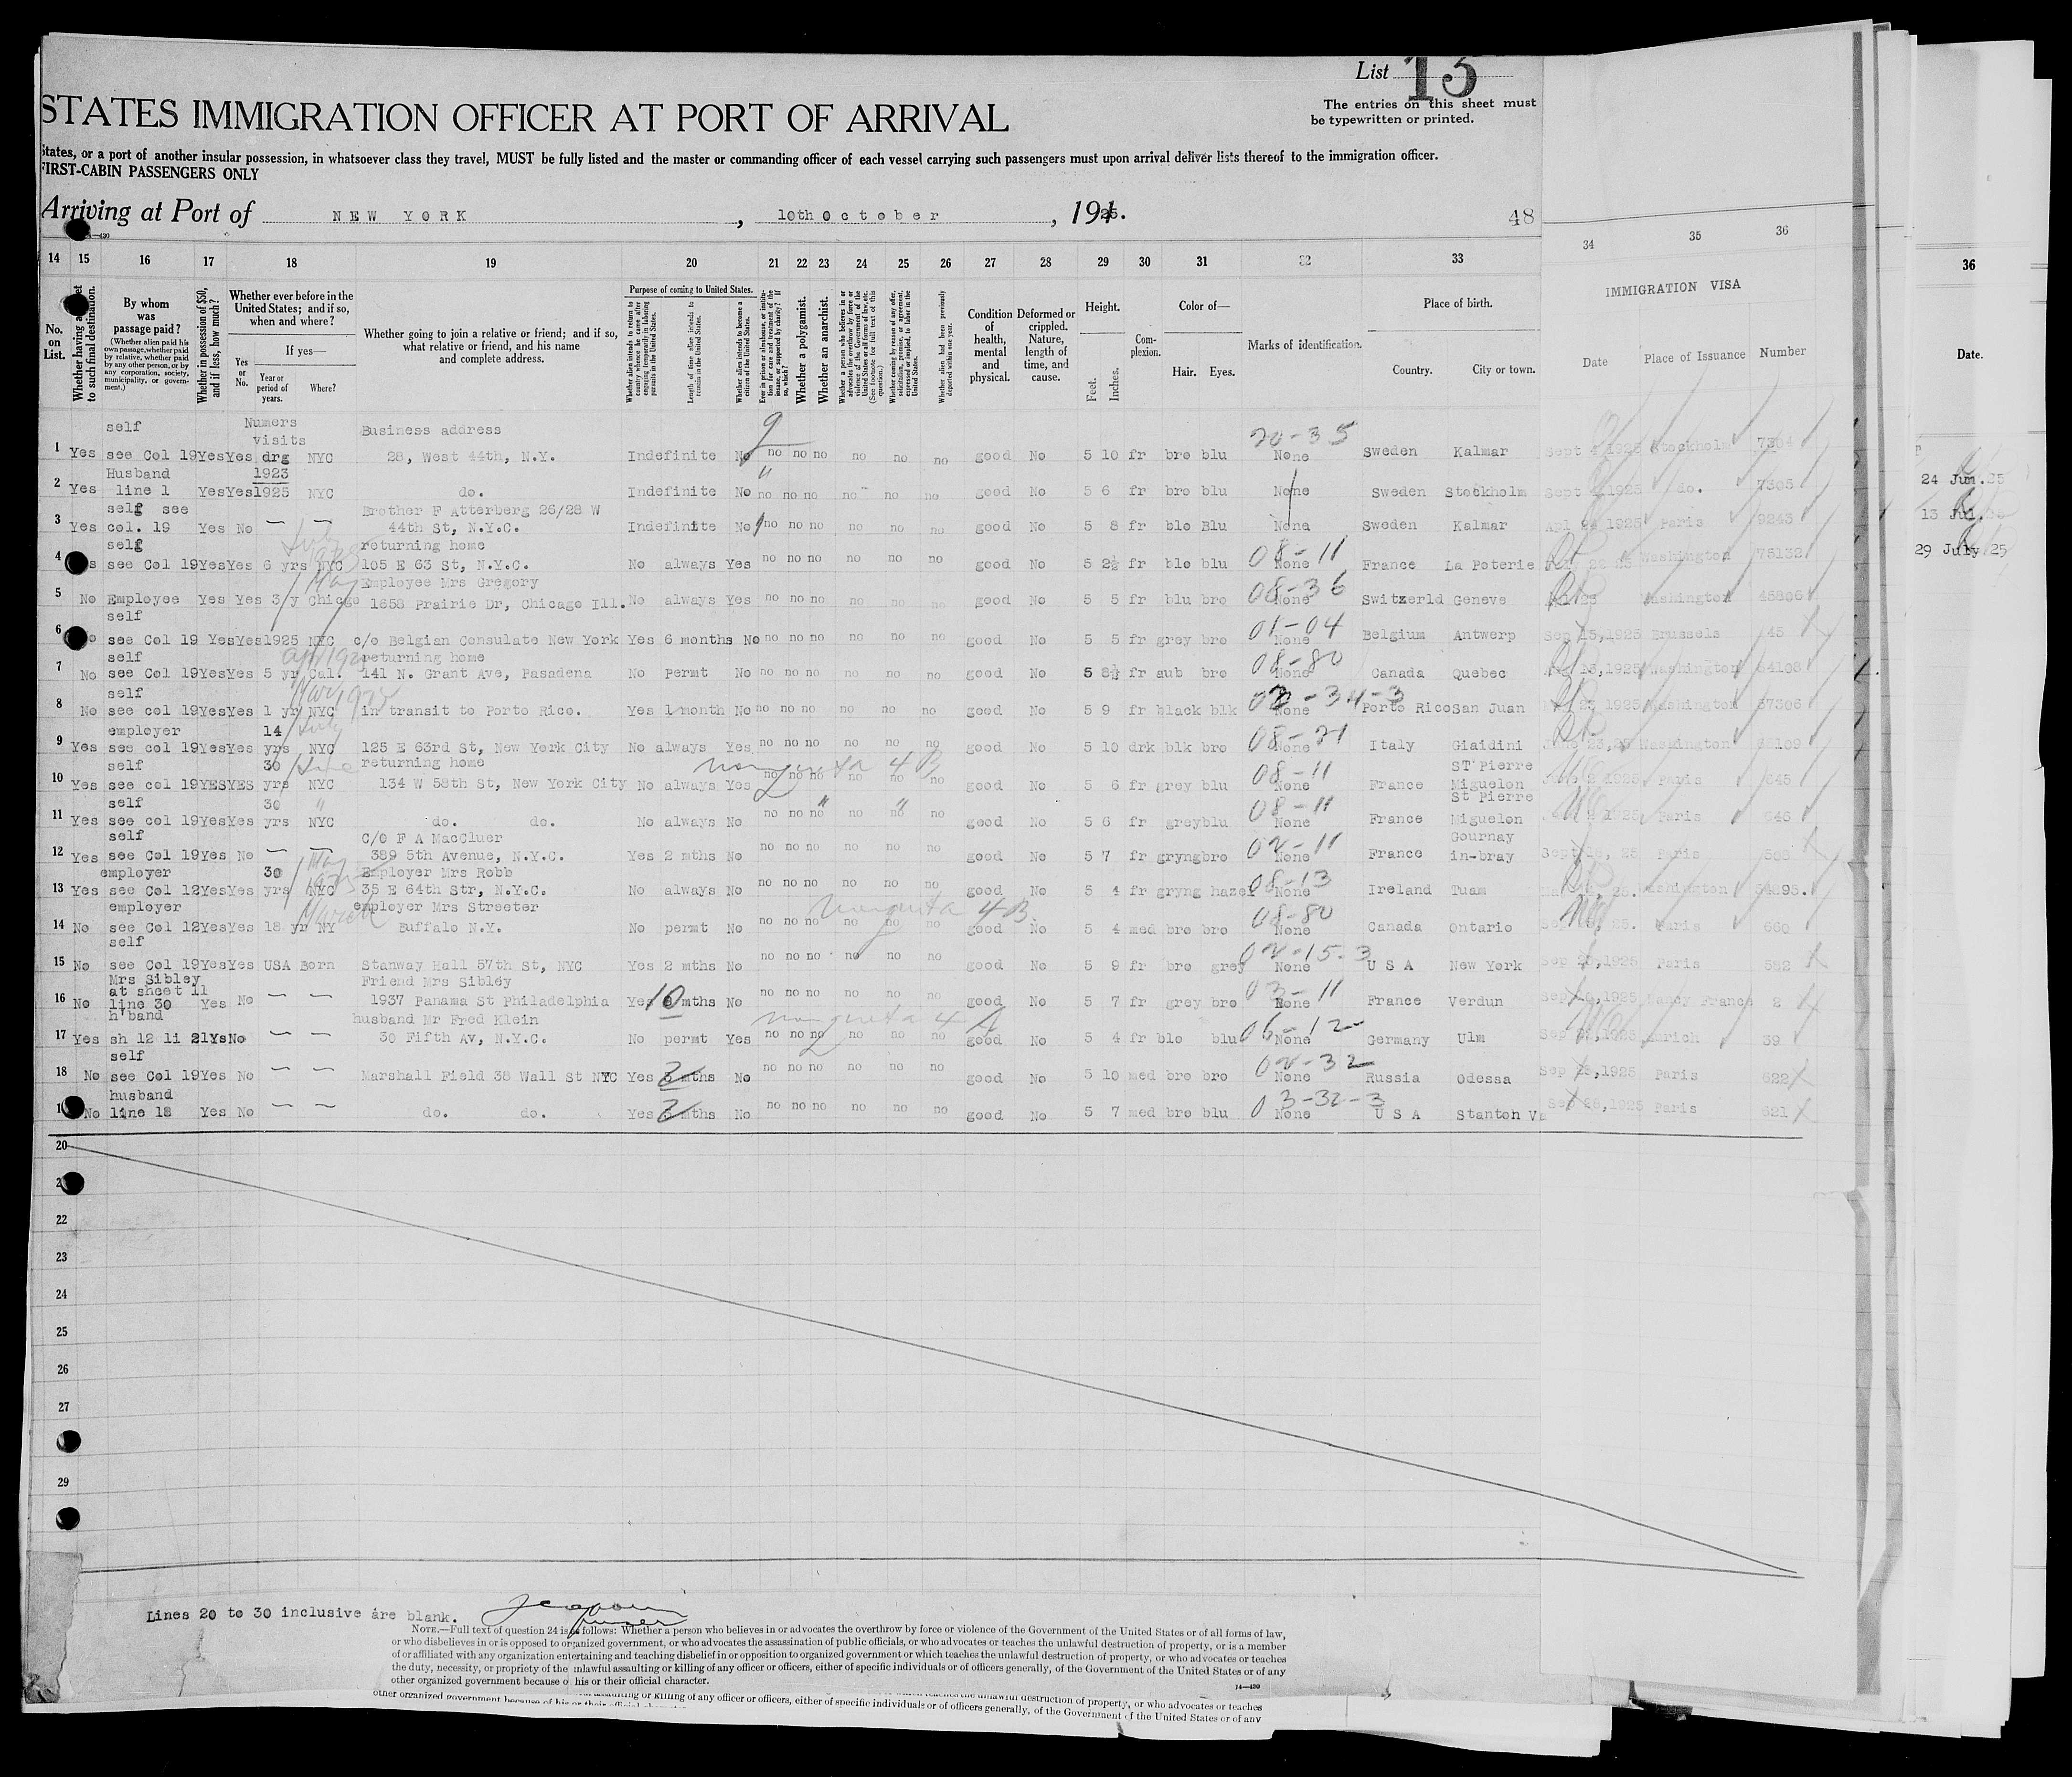 List 13
The entries on this sheet must
be typewritten or printed.
STATES IMMIGRATION OFFICER AT PORT OF ARRIVAL
States, or a port of another insular possession, in whatsoever class they travel, MUST be fully listed and the master or commanding officer of each vessel carrying such passengers must upon arrival deliver lists thereof to the immigration officer.
FIRST-CABIN PASSENGERS ONLY
Arriving at Port of NEW YORK, 10th October, 1925.
48
14 15 16 17 18 19 20 21 22 23 24 25 26 27 28 29 30 31 32 33 34 35 36
36
IMMIGRATION VISA
No. on List.
to such final destination.
By whom was passage paid?
(Whether alien paid his own passage, whether paid by relative, whether paid by any other person, or by any corporation, society, municipality, or government.)
Whether in possession of $50, and if less, how much?
Whether ever before in the United States; and if so, when and where?
If yes—
Yes or No.
Year or period of years.
Where?
Whether going to join a relative or friend; and if so, what relative or friend, and his name and complete address.
Purpose of coming to United States.
Whether alien intends to return to country whence he came after engaging temporarily in laboring pursuits in the United States.
Length of time alien intends to remain in the United States.
Whether alien intends to become a citizen of the United States.
Whether a polygamist.
Whether an anarchist.
Condition of health, mental and physical.
Deformed or crippled. Nature, length of time, and cause.
Height.
Feet. Inches.
Complexion.
Color of—
Hair. Eyes.
Marks of identification.
Place of birth.
Country. City or town.
Date Place of Issuance Number
Date.
self Numers visits Business address 20-35
1 Yes see Col 19 Yes Yes drg NYC 28, West 44th, N.Y. Indefinite No no no no no no no good No 5 10 fr bro blu None Sweden Kalmar Sept 1925 Stockholm 7304
Husband 1923
2 Yes line 1 Yes Yes 1925 NYC do. Indefinite No no no no no no no good No 5 6 fr bro blu None Sweden Stockholm Sept 1925 do. 7305
24 Jun. 25
self see Brother F Atterberg 26/28 W
3 Yes col. 19 Yes No — — 44th St, N.Y.C. Indefinite No no no no no no no good No 5 8 fr blo Blu None Sweden Kalmar 1925 Paris 9243
self returning home 08-11
4 see Col 19 Yes Yes 6 yrs NYC 105 E 63 St, N.Y.C. No always Yes no no no no no no good No 5 2½ fr blo blu None France La Poterie Washington 75132
29 July 25
May Employee Mrs Gregory 08-36
5 No Employee Yes Yes 3/y Chicago 1658 Prairie Dr, Chicago Ill. No always Yes no no no no no no good No 5 5 fr blu bro None Switzerld Geneve Washington 45806
self 01-04
6 see Col 19 Yes Yes 1925 NYC c/o Belgian Consulate New York Yes 6 months No no no no no no no good No 5 5 fr grey bro None Belgium Antwerp Sep 15,1925 Brussels 45
self returning home 08-80
7 No see Col 19 Yes Yes 5 yr Cal. 141 N. Grant Ave, Pasadena No permt No no no no no no no good No 5 8½ fr aub bro None Canada Quebec 1925 Washington 64108
self
8 No see col 19 Yes Yes 1 yr NYC in transit to Porto Rico. Yes 1 month No no no no no no no good No 5 9 fr black blk None Porto Rico San Juan 1925 Washington 57306
employer 14 July 08-21
9 Yes see col 19 Yes Yes yrs NYC 125 E 63rd St, New York City No always Yes no no no no no no good No 5 10 drk blk bro None Italy Giaidini Washington
self 30 June returning home nonquota 4 B 08-11 ST Pierre
10 Yes see col 19 YES YES yrs NYC 134 W 58th St, New York City No always Yes no no no no no no good No 5 6 fr grey blu None France Miguelon 1925 Paris 645
self 30 " 08-11 St Pierre
11 Yes see col 19 Yes Yes yrs NYC do. do. No always No no no no no no no good No 5 6 fr grey blu None France Miguelon 1925 Paris 646
self C/O F A MacCluer 02-11 Gournay
12 Yes see Col 19 Yes No — — 389 5th Avenue, N.Y.C. Yes 2 mths No no no no no no no good No 5 7 fr gryng bro None France in-bray Sept 25 Paris
employer 30 May Employer Mrs Robb 08-13
13 Yes see Col 12 Yes Yes yrs NYC 35 E 64th Str, N.Y.C. No always No no no no no no no good No 5 4 fr gryng hazel None Ireland Tuam 25. Washington 54895.
employer March employer Mrs Streeter nonquota 4 B 08-80
14 No see Col 12 Yes Yes 18 yr NY Buffalo N.Y. No permt No no no no no no no good No 5 4 med bro bro None Canada Ontario 25. Paris 660
self 02-15-3
15 No see Col 19 Yes Yes USA Born Stanway Hall 57th St, NYC Yes 2 mths No no no no no no no good No 5 9 fr bro grey None U S A New York Sep 1925 Paris 582
Mrs Sibley at sheet 11 Friend Mrs Sibley 03-11
16 No line 30 Yes No — — 1937 Panama St Philadelphia Yes 10 mths No no no no no no no good No 5 7 fr grey bro None France Verdun Sep 1925 Nancy France 2
h'band husband Mr Fred Klein nonquota 4 A 06-12
17 Yes sh 12 li 21 Ys No — — 30 Fifth Av, N.Y.C. No permt Yes no no no no no no good No 5 4 fr blo blu None Germany Ulm Sep 1925 Zurich 39
self 02-32
18 No see Col 19 Yes No — — Marshall Field 38 Wall St NYC Yes 2 mths No no no no no no no good No 5 10 med bro bro None Russia Odessa Sep 1925 Paris 622
husband 03-32-3
19 No line 18 Yes No — — do. do. Yes 2 mths No no no no no no no good No 5 7 med bro blu None U S A Stanton Va Sep 28,1925 Paris 621
20
22
23
24
25
26
27
29
Lines 20 to 30 inclusive are blank.
Purser
NOTE.—Full text of question 24 is as follows: Whether a person who believes in or advocates the overthrow by force or violence of the Government of the United States or of all forms of law,
or who disbelieves in or is opposed to organized government, or who advocates the assassination of public officials, or who advocates or teaches the unlawful destruction of property, or is a member
of or affiliated with any organization entertaining and teaching disbelief in or opposition to organized government or which teaches the unlawful destruction of property, or who advocates or teaches
the duty, necessity, or propriety of the unlawful assaulting or killing of any officer or officers, either of specific individuals or of officers generally, of the Government of the United States or of any
other organized government because of his or their official character.
14—430